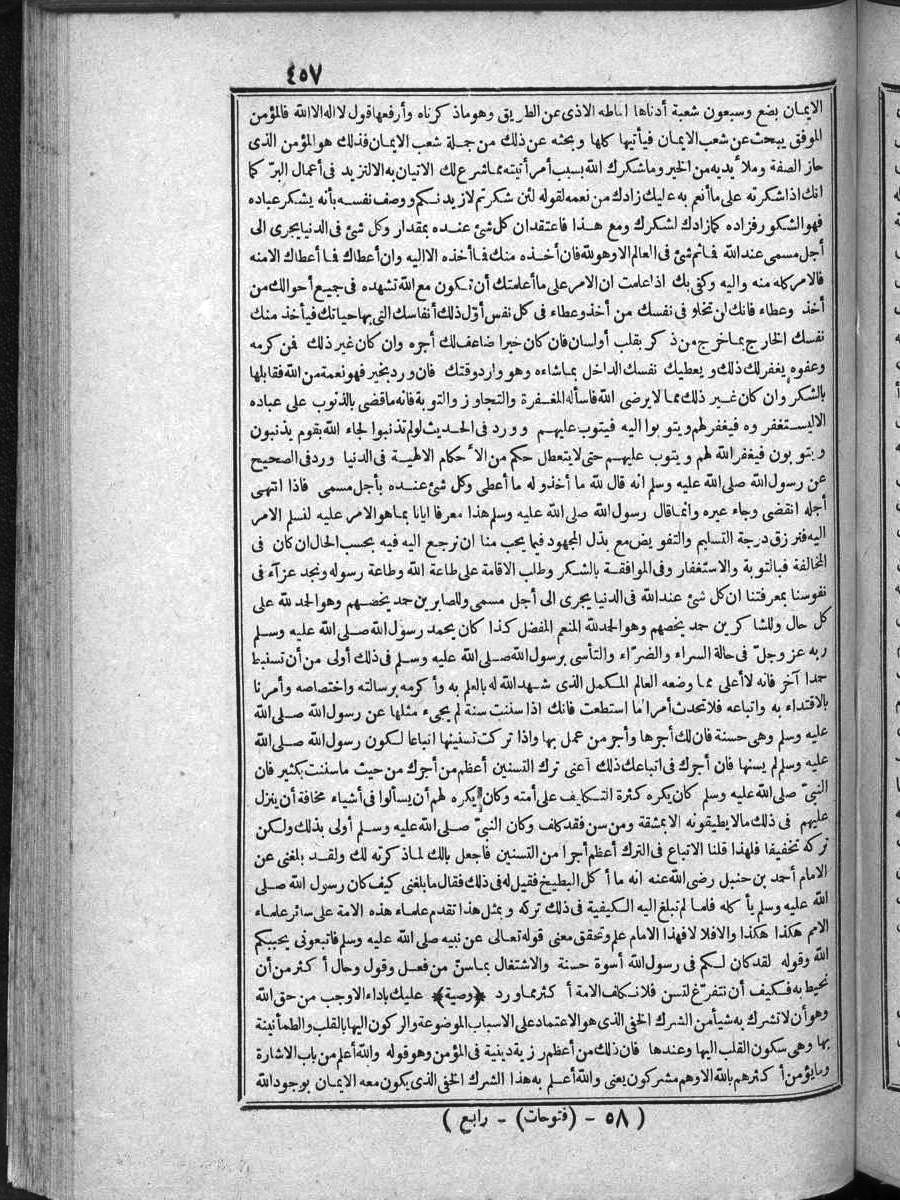 ٤٥٧
الايمان بضع وسبعون شعبة أدناها اماطة الاذى عن الطريق وهو ماذكرناه وأرفعها قول لااله الاالله فالمؤمن
الموفق يبحث عن شعب الايمان فيأتيها كلها وبحثه عن ذلك من جملة شعب الايمان فذلك هو المؤمن الذى
حاز الصفة وملأ يديه من الخير وماشكرك الله بسبب أمر أتيته مماشرع لك الاتيان به الالتزيد فى أعمال البرّ كما
انك اذاشكرته على ماأنعم به عليك زادك من نعمه لقوله لئن شكرتم لازيدنكم ووصف نفسه بأنه يشكر عباده
فهو الشكور فزاده كمازادك لشكرك ومع هذا فاعتقد ان كل شئ عنده بمقدار وكل شئ فى الدنيا يجرى الى
أجل مسمى عند الله فماثم شئ فى العالم الاوهو لله فان أخذه منك فما أخذه الااليه وان أعطاك فما أعطاك الامنه
فالامر كله منه واليه وكفى بك اذاعلمت ان الامر على ماأعلمتك أن تكون مع الله تشهده فى جميع أحوالك من
أخذ وعطاء فانك لن تخلو فى نفسك من أخذ وعطاء فى كل نفس أوّل ذلك أنفاسك التى بها حياتك فيأخذ منك
نفسك الخارج بماخرج من ذكر بقلب أولسان فان كان خيرا ضاعف لك أجره وان كان غير ذلك فمن كرمه
وعفوه يغفر لك ذلك ويعطيك نفسك الداخل بماشاءه وهو وارد وقتك فان ورد بخير فهو نعمة من الله فقابلها
بالشكر وان كان غير ذلك مما لايرضى الله فاسأله المغفرة والتجاوز والتوبة فانه ماقضى بالذنوب على عباده
الاليستغفروه فيغفر لهم ويتوبوا اليه فيتوب عليهم وورد فى الحديث لولم تذنبوا لجاء الله بقوم يذنبون
ويتوبون فيغفر الله لهم ويتوب عليهم حتى لايتعطل حكم من الأحكام الالهية فى الدنيا وورد فى الصحيح
عن رسول الله صلى الله عليه وسلم انه قال لله ما أخذ وله ما أعطى وكل شئ عنده بأجل مسمى فاذا انتهى
أجله انقضى وجاء غيره وانماقال رسول الله صلى الله عليه وسلم هذا معرفا ايانا بماهو الامر عليه لنسلم الامر
اليه فنرزق درجة التسليم والتفويض مع بذل المجهود فيما يحب منا ان نرجع اليه فيه بحسب الحال ان كان فى
المخالفة فبالتوبة والاستغفار وفى الموافقة بالشكر وطلب الاقامة على طاعة الله وطاعة رسوله ونجد عزآء فى
نفوسنا بمعرفتنا ان كل شئ عند الله فى الدنيا يجرى الى أجل مسمى وللصابرين حمد يخصهم وهو الحمد لله على
كل حال وللشاكرين حمد يخصهم وهو الحمد لله المنعم المفضل كذا كان يحمد رسول الله صلى الله عليه وسلم
ربه عز وجلّ فى حالة السراء والضرّاء والتأسى برسول الله صلى الله عليه وسلم فى ذلك أولى من أن تستنبط
حمدا آخر فانه لاأعلى مما وضعه العالم المكمل الذى شهد الله له بالعلم به وأكرمه برسالته واختصاصه وأمرنا
بالاقتداء به واتباعه فلاتحدث أمرا ما استطعت فانك اذا سننت سنة لم يجىء مثلها عن رسول الله صلى الله
عليه وسلم وهى حسنة فان لك أجرها وأجر من عمل بها واذا تركت تسنينها اتباعا لكون رسول الله صلى الله
عليه وسلم لم يسنها فان أجرك فى اتباعك ذلك أعنى ترك التسنين أعظم من أجرك من حيث ماسننت بكثير فان
النبىّ صلى الله عليه وسلم كان يكره كثرة التكليف على أمته وكان يكره لهم أن يسألوا فى أشياء مخافة أن ينزل
عليهم فى ذلك مالايطيقونه الابمشقة ومن سن فقد كلف وكان النبىّ صلى الله عليه وسلم أولى بذلك ولكن
تركه تخفيفا فلهذا قلنا الاتباع فى الترك أعظم أجرا من التسنين فاجعل بالك لماذكرته لك ولقد بلغنى عن
الامام أحمد بن حنبل رضى الله عنه انه ما أكل البطيخ فقيل له فى ذلك فقال مابلغنى كيف كان رسول الله صلى
الله عليه وسلم يأكله فلما لم تبلغ اليه الكيفية فى ذلك تركه وبمثل هذا تقدم علماء هذه الامة على سائر علماء
الامم هكذا هكذا والافلا لا فهذا الامام علم وتحقق معنى قوله تعالى عن نبيه صلى الله عليه وسلم فاتبعونى يحببكم
الله وقوله لقد كان لكم فى رسول الله أسوة حسنة والاشتغال بماسنّ من فعل وقول وحال أكثر من أن
نحيط به فكيف أن نتفرّغ لنسن فلانكلف الامة أكثر مماورد ﴿وصية﴾ عليك باداء الاوجب من حق الله
وهو أن لاتشرك به شيأ من الشرك الخفى الذى هو الاعتماد على الاسباب الموضوعة والركون اليها بالقلب والطمأنينة
بها وهى سكون القلب اليها وعندها فان ذلك من أعظم رزية دينية فى المؤمن وهو قوله والله أعلم من باب الاشارة
ومايؤمن أكثرهم بالله الاوهم مشركون يعنى والله أعلم به هذا الشرك الخفى الذى يكون معه الايمان بوجود الله
( ٥٨ - (فتوحات) - رابع )